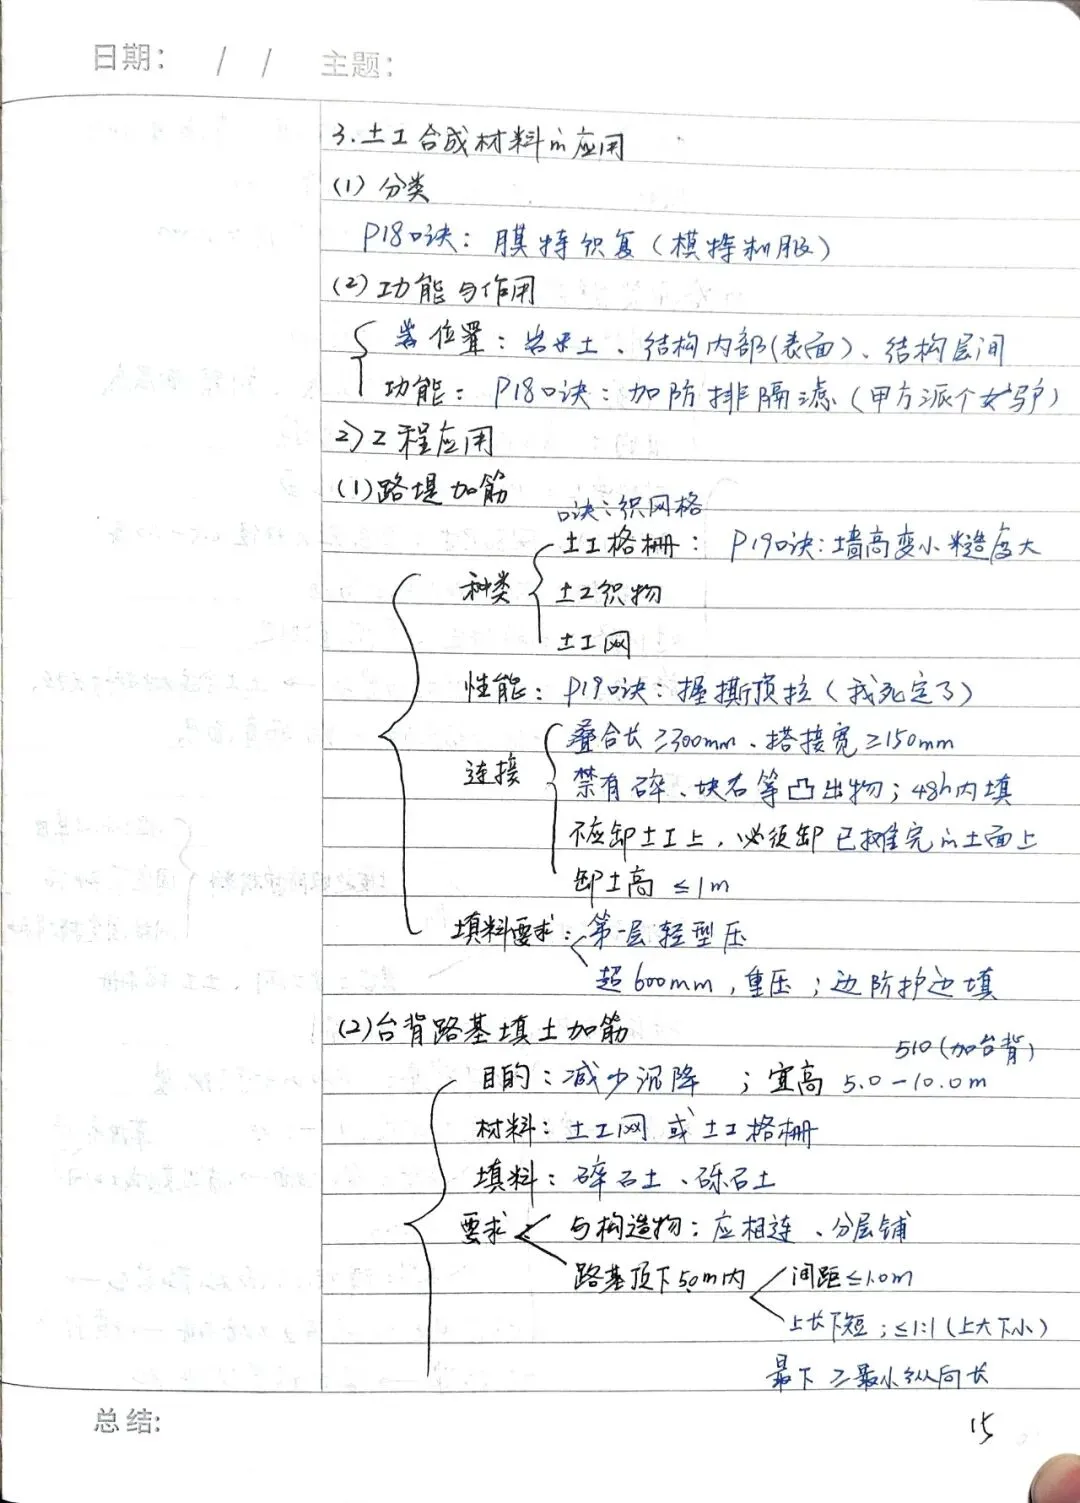 日期： / / 主题：
3.土工合成材料的应用
(1) 分类
P18口诀：膜特织复（模特制服）
(2) 功能与作用
位置：岩土、结构内部(表面)、结构层间
功能：P18口诀：加防排隔滤（甲方派个女驴）
2)工程应用
(1)路堤加筋
口诀：织网格
种类
土工格栅：P19口诀：墙高变小糙度大
土工织物
土工网
性能：P19口诀：握撕顶拉（我死定了）
连接
叠合长≥300mm、搭接宽≥150mm
禁有碎、块石等凸出物；48h内填
不应卸土工上，必须卸已摊完的土面上
卸土高 ≤1m
填料要求：第一层轻型压
超600mm，重压；边防护边填
(2)台背路基填土加筋
510(加台背)
目的：减少沉降；宜高 5.0-10.0m
材料：土工网或土工格栅
填料：碎石土、砾石土
要求
与构造物：应相连、分层铺
路基顶下5.0m内
间距≤1.0m
上长下短；≤1:1(上大下小)
最下≥最小纵向长
总结:
15